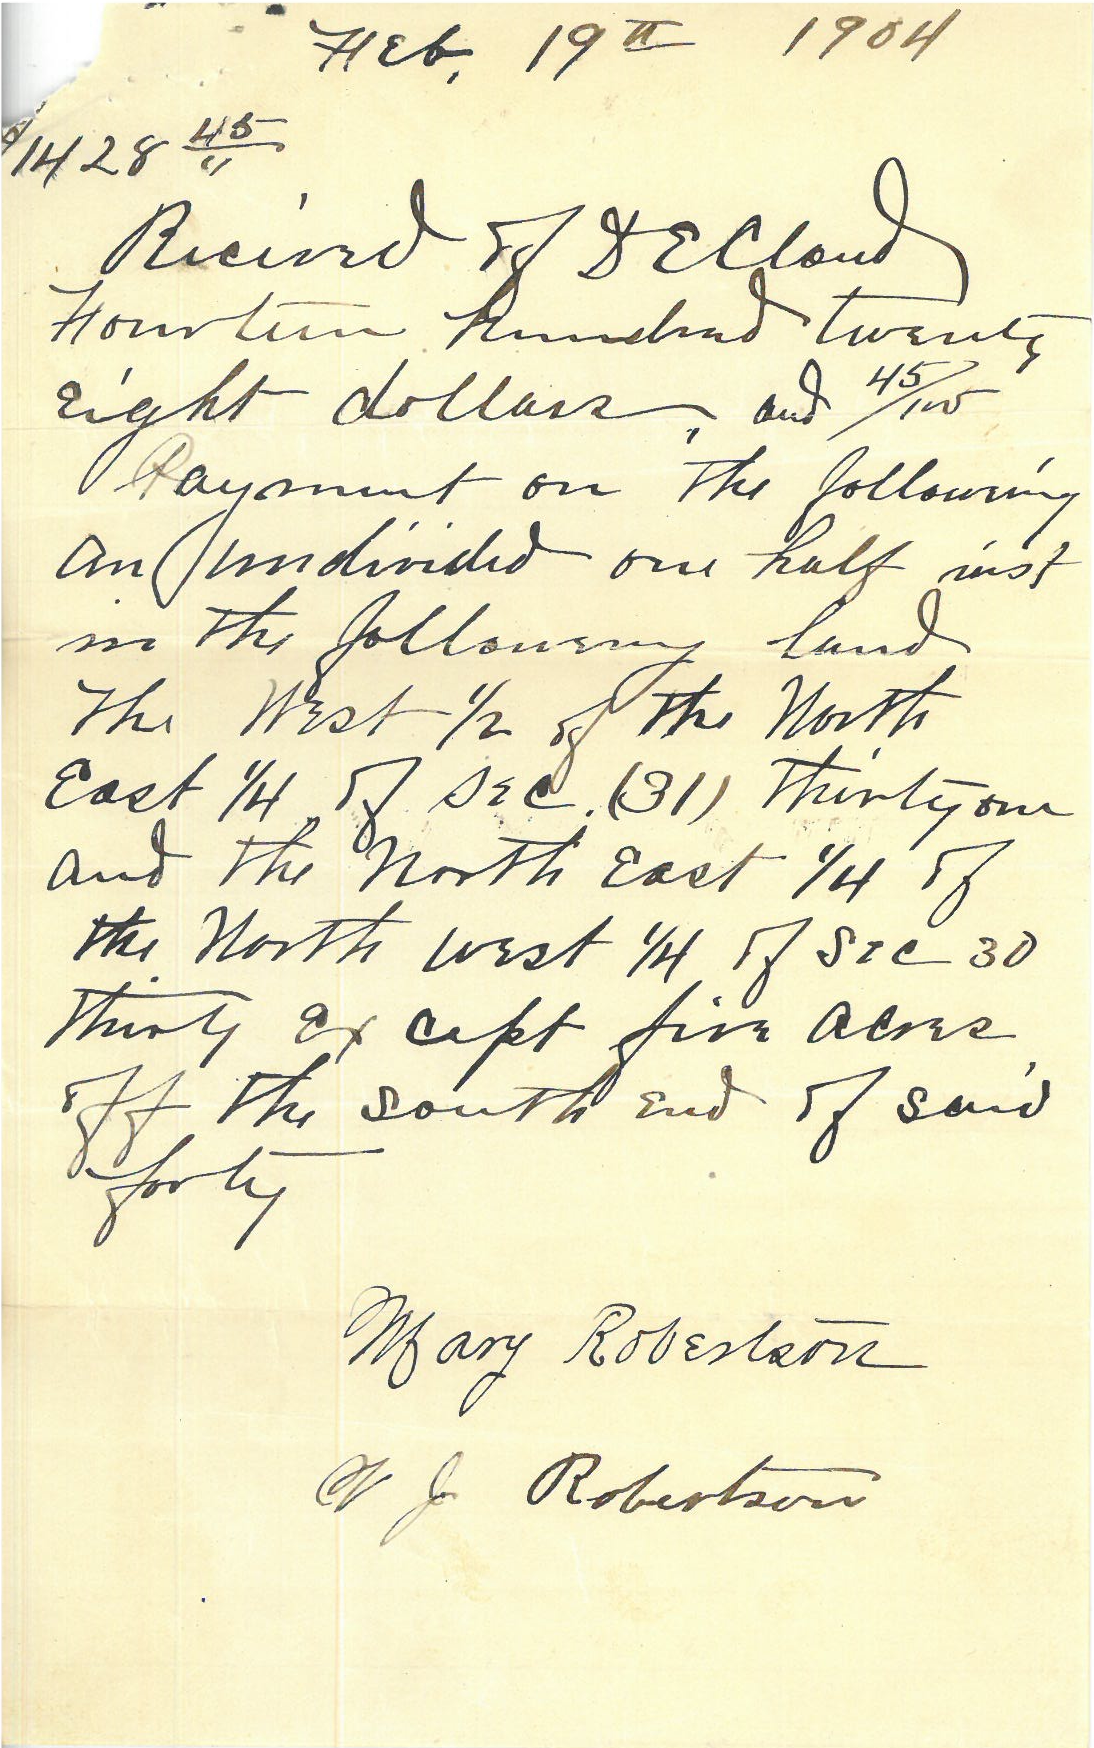 Feb. 19th 1904
$1428 45/"
Recieved of D E Cloud
Fourteen hundred twenty
eight dollars, and 45/100
Payment on the following
an undivided one half inst
in the following land
The West 1/2 of the North
East 1/4 of Sec. (31) Thirty one
and the North East 1/4 of
the North west 1/4 of Sec 30
thirty Except five acres
off the south end of said
forty
Mary Robertson
W J Robertson